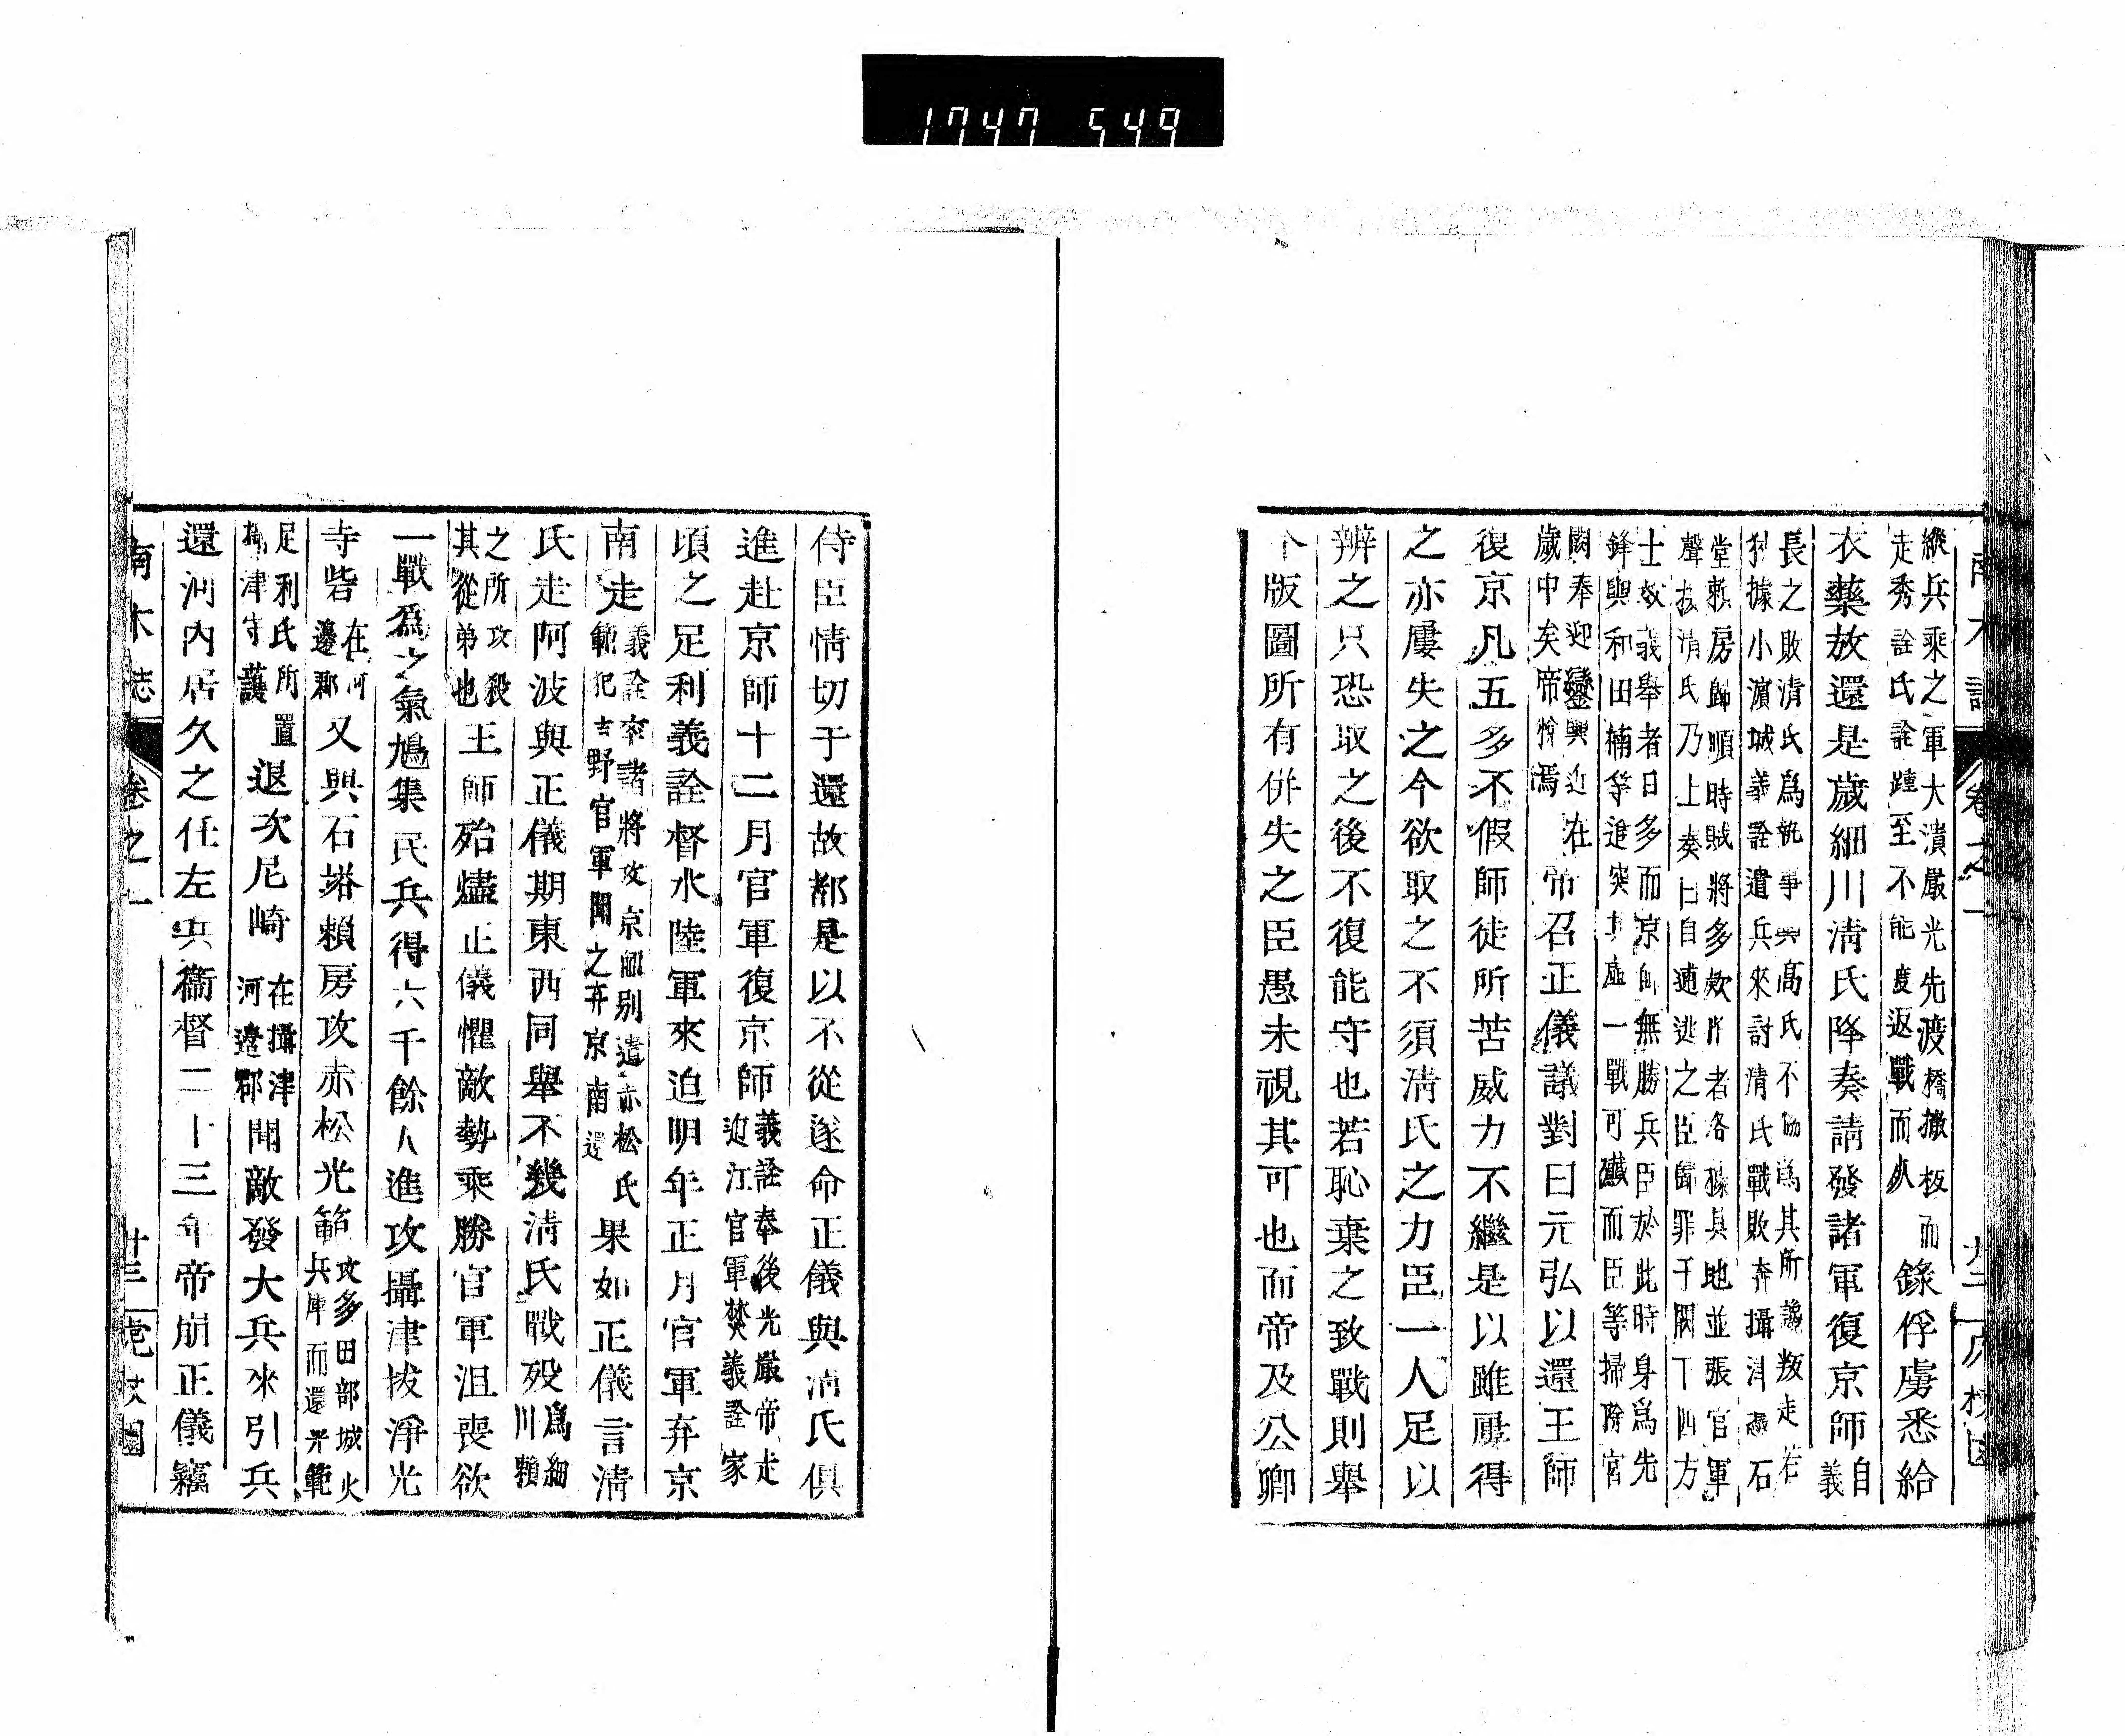 1747 549
縱兵乘之軍大潰嚴光先渡橋撤板而
走秀詮氏詮踵至不能度返戰而
錄俘虜悉給
衣藥放還是歲細川清氏降奏請發諸軍復京師
自
義
長之敗清氏爲執事與高氏不
爲其所讒叛走若
狹據小濵城義詮遣兵來討清氏戰敗奔攝津憑石
堂賴房歸順時賊將多欵附者各據其地並張官軍
聲援清氏乃上奏曰自逋逃之臣歸罪于闕下四方
士效義舉者日多而京師無勝兵臣於此時身爲先
鋒與和田楠等進突其虛一戰可殲而臣等掃除宮
闕奉迎鑾輿近在
歲中矣帝悅焉
帝召正儀議對曰元弘以還王師
復京凡五多不假師徒所苦威力不繼是以雖屢得
之亦屢失之今欲取之不須淸氏之力臣一人足以
辨之只恐取之後不復能守也若恥棄之致戰則舉
版圖所有併失之臣愚未視其可也而帝及公卿
侍臣情切于還故都是以不從遂命正儀與淸氏俱
進赴京師十二月官軍復京師
義詮奉後光嚴帝走
近江官軍焚義詮家
頃之足利義詮督水陸軍來迫明年正月官軍弃京
南走
義詮率諸將攻京師別遣赤松氏
範犯吉野官軍聞之弃京南還
果如正儀言淸
氏走阿波與正儀期東西同舉不幾淸氏戰歿
爲細
川賴
之所攻殺
其從弟也
王師殆燼正儀懼敵勢乘勝官軍沮喪欲
一戰爲之氣鳩集民兵得六千餘人進攻攝津拔淨光
寺砦
在河
邊郡
又與石塔賴房攻赤松光範
攻多田部城火
兵庫而還光範
足利氏所置
攝津守護
退次尼崎
在攝津
河邊郡
聞敵發大兵來引兵
還河內居久之任左兵衞督二十三年帝崩正儀竊
南木誌 卷之一 廿三